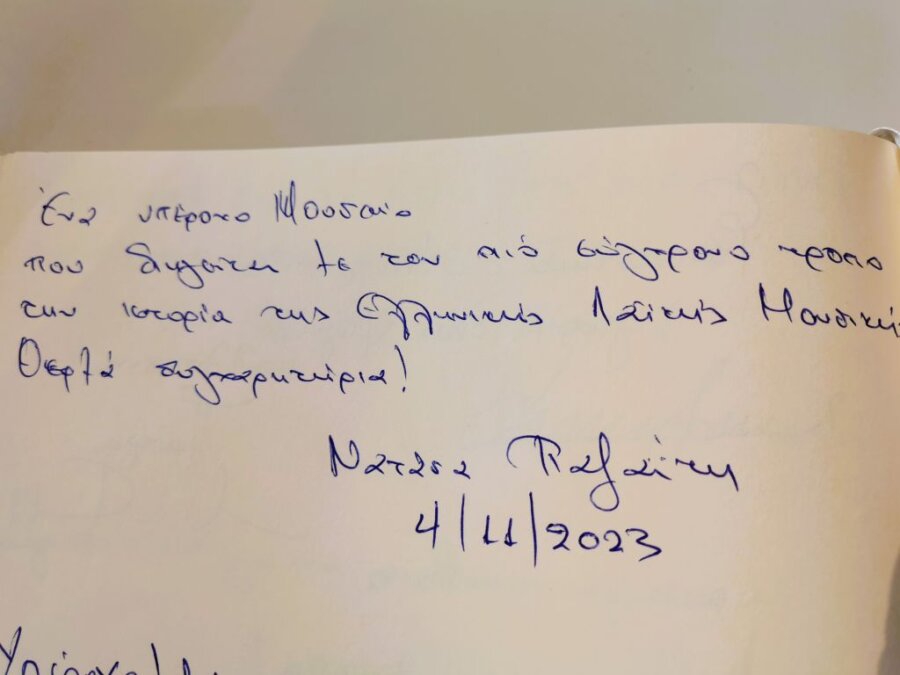 Ένα υπέροχο Μουσείο
που διηγείται με τον πιό σύγχρονο τρόπο
την ιστορία της Ελληνικής Λαϊκής Μουσικής
Θερμά συγχαρητήρια!
Νατάσα Παζαΐτη
4/11/2023